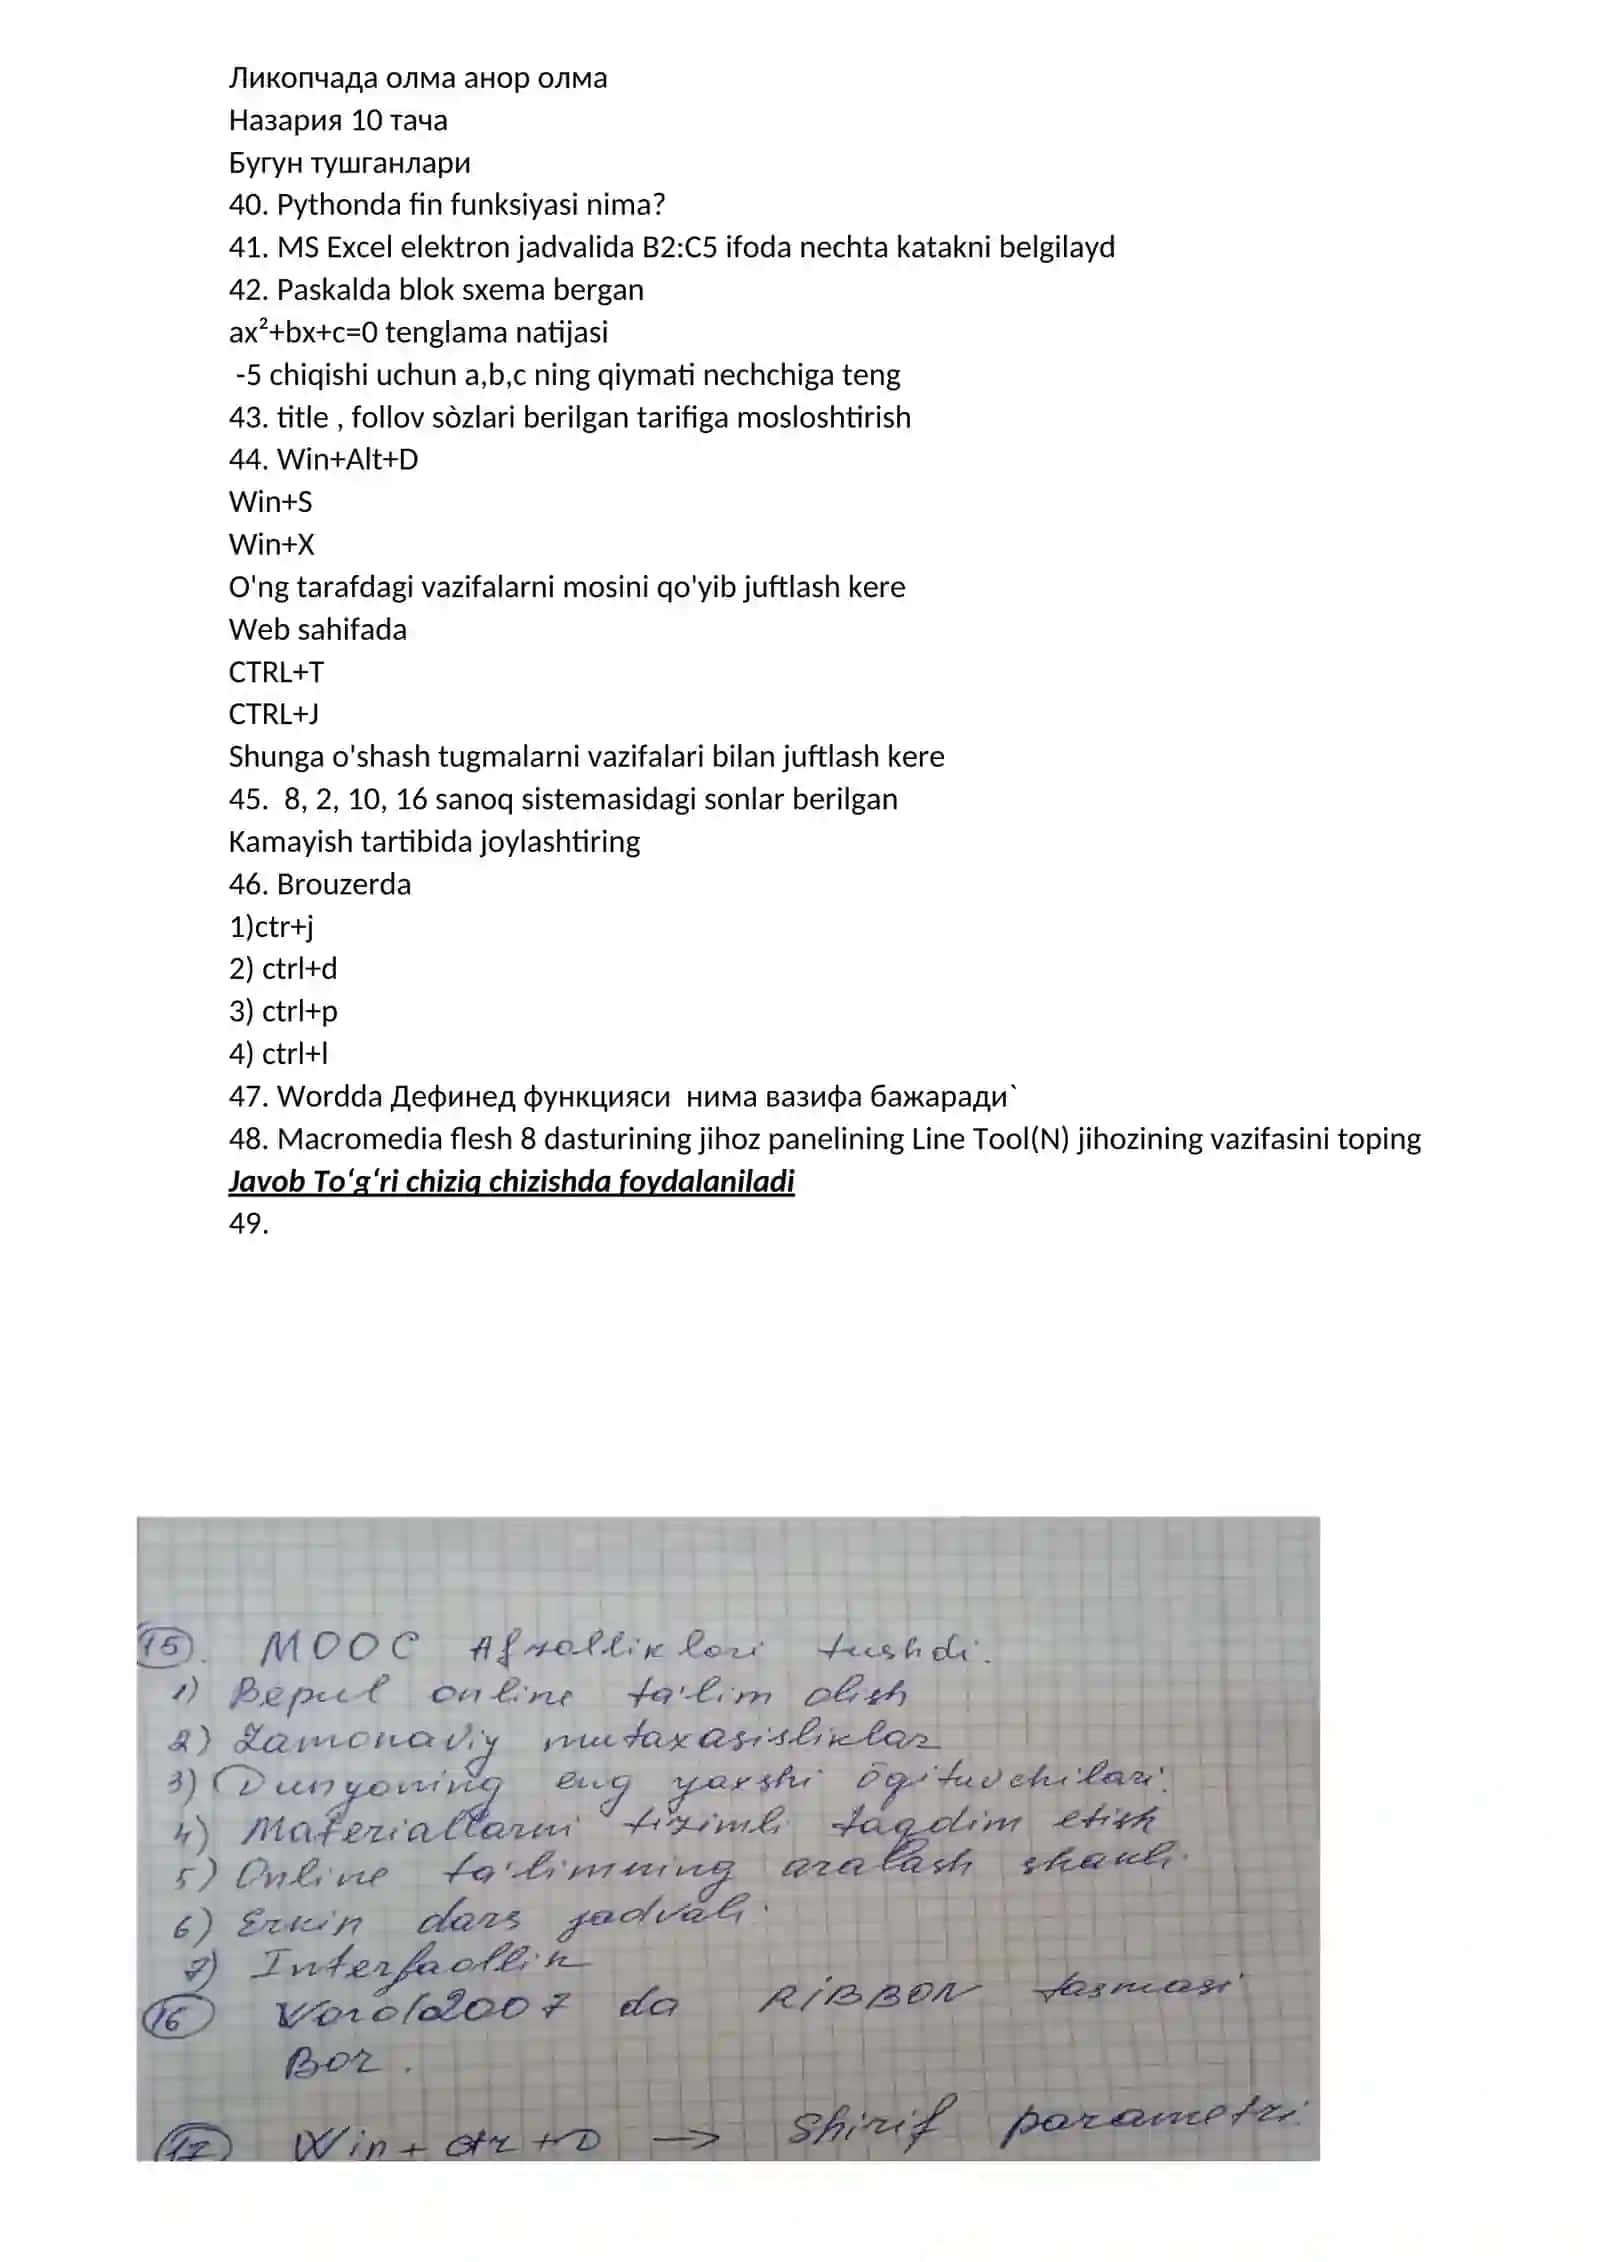 Ликопчада олма анор олма
Назария 10 тача
Бугун тушганлари
40. Pythonda fin funksiyasi nima?
41. MS Excel elektron jadvalida B2:C5 ifoda nechta katakni belgilayd
42. Paskalda blok sxema bergan
ax²+bx+c=0 tenglama natijasi
-5 chiqishi uchun a,b,c ning qiymati nechchiga teng
43. title , follov sòzlari berilgan tarifiga mosloshtirish
44. Win+Alt+D
Win+S
Win+X
O'ng tarafdagi vazifalarni mosini qo'yib juftlash kere
Web sahifada
CTRL+T
CTRL+J
Shunga o'shash tugmalarni vazifalari bilan juftlash kere
45. 8, 2, 10, 16 sanoq sistemasidagi sonlar berilgan
Kamayish tartibida joylashtiring
46. Brouzerda
1)ctr+j
2) ctrl+d
3) ctrl+p
4) ctrl+l
47. Wordda Дефинед функцияси нима вазифа бажаради`
48. Macromedia flesh 8 dasturining jihoz panelining Line Tool(N) jihozining vazifasini toping
Javob To‘g‘ri chiziq chizishda foydalaniladi
49.
15. MOOC Afzalliklari tushdi.
1) Bepul online ta'lim olish
2) Zamonaviy mutaxasisliklar
3) Dunyoning eng yaxshi ōgituvchilari.
4) Materiallarni tizimli taqdim etish
5) Online ta'limning aralash shakli.
6) Erkin dars jadvali.
7) Interfaollik
16 Word2007 da RiBBON tasmasi
Bor.
17 Win + ctr + D → Shirif parametri.